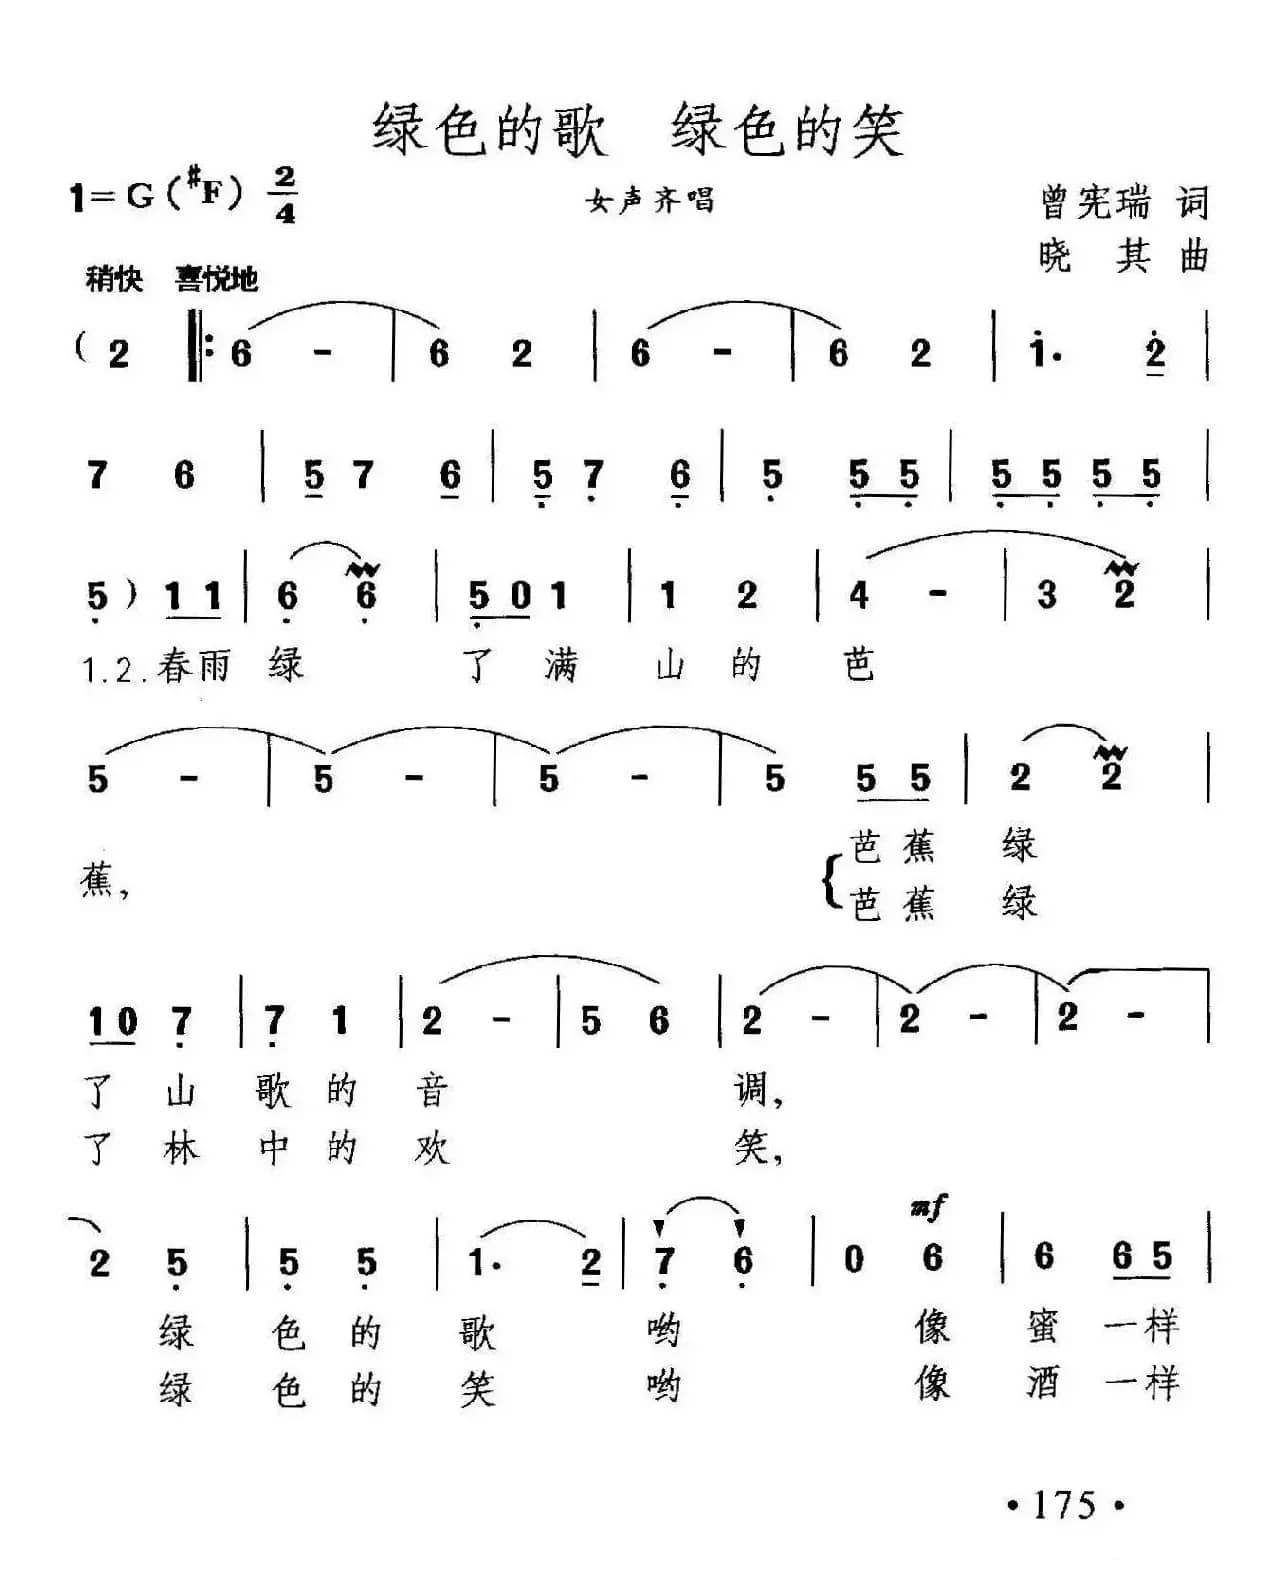 绿色的歌 绿色的笑
1=G(#F) 2/4 女声齐唱 曾宪瑞 词
晓其 曲
稍快 喜悦地
( 2 ‖: 6 - | 6 2 | 6 - | 6 2 | i. 2̇ |
7 6 | 5 7 6 | 5̣ 7̣ 6̣ | 5̣ 5̣ 5̣ | 5̣ 5̣ 5̣ 5̣ |
5̣ ) 1 1 | 6̣ 6̣ | 5̣ 0 1 | 1 2 | 4 - | 3 2 |
1.2.春雨绿 了满山的芭
5 - | 5 - | 5 - | 5 5 5 | 2 2 |
蕉, 芭蕉绿
芭蕉绿
1 0 7̣ | 7̣ 1 | 2 - | 5 6 | 2 - | 2 - | 2 - |
了山歌的音 调,
了林中的欢 笑,
mf
2 5̣ | 5̣ 5̣ | 1. 2 | 7̣ 6̣ | 0 6 | 6 6 5 |
绿色的歌哟 像蜜一样
绿色的笑哟 像酒一样
·175·